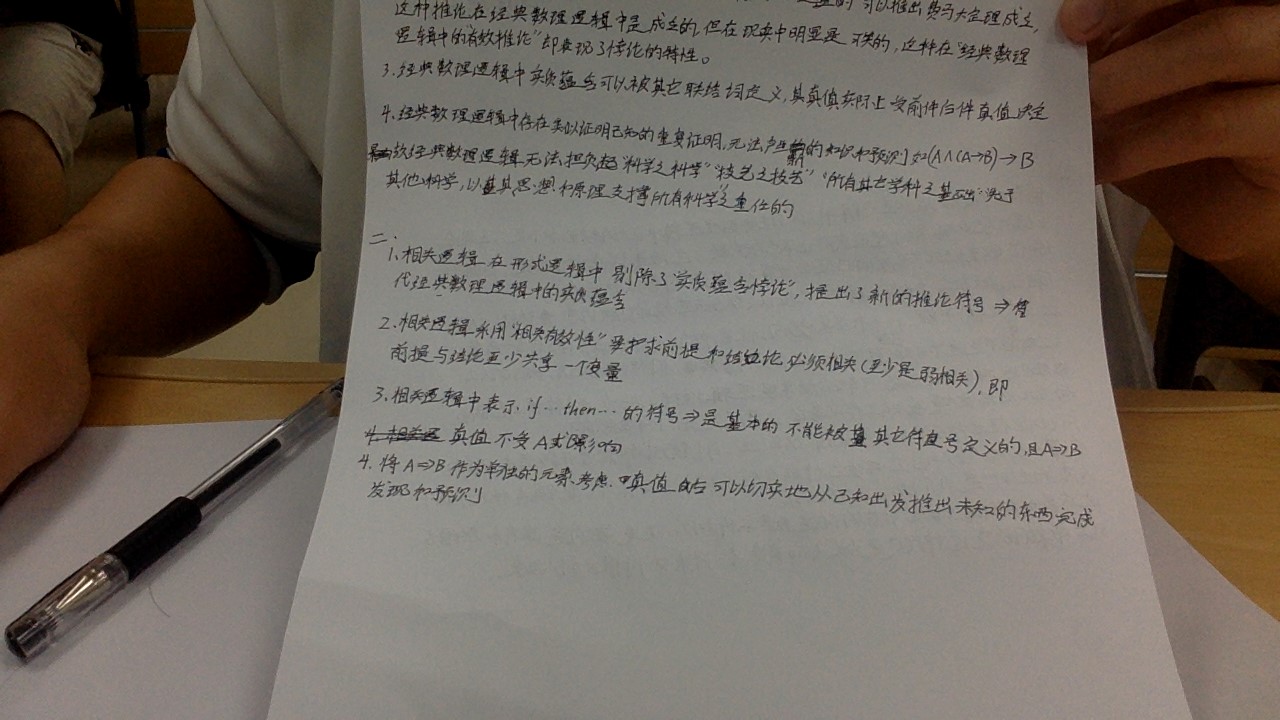 可以推出费马大定理成立,
这种推论在经典数理逻辑中是成立的,但在现实中明显是 的,这种在"经典数理
逻辑中的有效推论"即表现了悖论的特性。
3.经典数理逻辑中实质蕴含可以被其它联结词定义,其真值实际上受前件后件真值决定
4.经典数理逻辑中存在类似证明已知的重复证明,无法产生新的知识和预测 如(A∧(A→B)→B
故经典数理逻辑无法担负起"科学之科学""技艺之技艺""所有其它学科之基础"先于
其他科学,以其思想和原理支撑所有科学之重任的
二、
1.相关逻辑在形式逻辑中剔除了"实质蕴含悖论",提出了新的推论符号⇒替
代经典数理逻辑中的实质蕴含
2.相关逻辑采用"相关有效性"要求前提和结论必须相关(至少是弱相关),即
前提与结论至少共享一个变量
3.相关逻辑中表示if…then…的符号⇒是基本的不能被其它符号定义的,且A⇒B
真值不受A或B影响
4.将A⇒B作为单独的元素考虑. 真值 后可以切实地从已知出发推出未知的东西完成
发现和预测